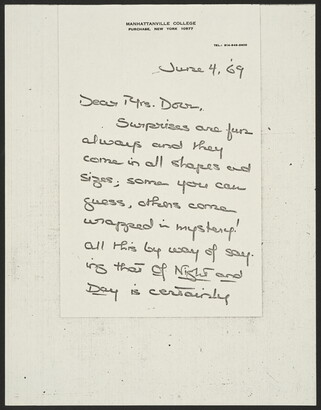 MANHATTANVILLE COLLEGE
PURCHASE, NEW YORK 10577
June 4, '69
Dear Mrs. Dow,
Surprises are fun
always and they
come in all shapes and
sizes; some you can
guess, others come
wrapped in mystery!
All this by way of say-
ing that Of Night and
Day is certainly